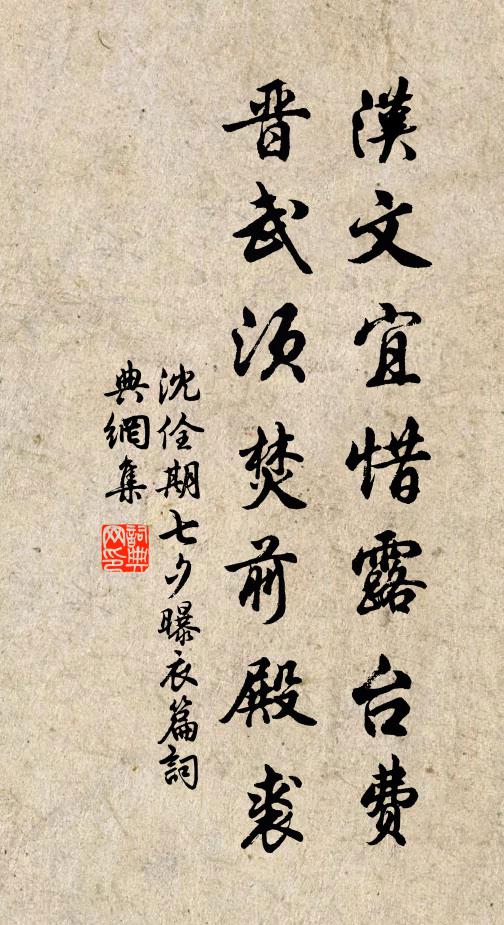 漢文宜惜露台費
晋武須焚前殿裘
沈佺期七夕曝衣篇詞
典網集
詞典
网印